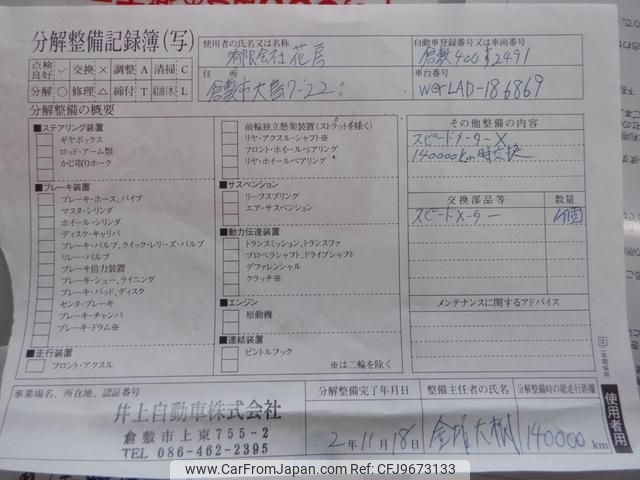 分解整備記録簿(写)
点検良好 ✓ 交換 × 調整 A 清掃 C
分解 ○ 修理 △ 締付 T 給油(水) L
使用者の氏名又は名称
有限会社 花房
住所
倉敷市大島
自動車登録番号又は車両番号
倉敷400す2491
車台番号
分解整備の概要
■ステアリング装置
ギヤボックス
ロッド・アーム類
かじ取りホーク
■ブレーキ装置
ブレーキ・ホース、パイプ
マスタ・シリンダ
ホイール・シリンダ
ディスク・キャリパ
ブレーキ・バルブ、クイック・レリーズ・バルブ
リレー・バルブ
ブレーキ倍力装置
ブレーキ・シュー、ライニング
ブレーキ・パッド、ディスク
センタ・ブレーキ
ブレーキ・チャンバ
ブレーキ・ドラム※
■走行装置
フロント・アクスル
前輪独立懸架装置(ストラットを除く)
リヤ・アクスル・シャフト※
フロント・ホイールベアリング
リヤ・ホイールベアリング
■サスペンション
リーフスプリング
エア・サスペンション
■動力伝達装置
トランスミッション、トランスファ
プロペラシャフト、ドライブシャフト
デファレンシャル
クラッチ※
■エンジン
原動機
■連結装置
ピントルフック
※は二輪を除く
その他整備の内容
スピードメーター ×
140000km時交換
交換部品等 数量
スピードメーター 1個
メンテナンスに関するアドバイス
注 二年間保存
事業場名、所在地、認証番号
井上自動車株式会社
倉敷市上東755-2
TEL 086-462-2395
分解整備完了年月日
2年11月18日
整備主任者の氏名
分解整備時の総走行距離
140000 km
使用者用
www.CarFromJapan.com | Used Car ID: CFJ9673133